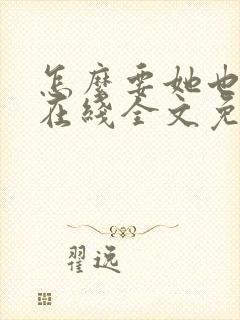 怎麼要她也
在綫全文免
翟逸